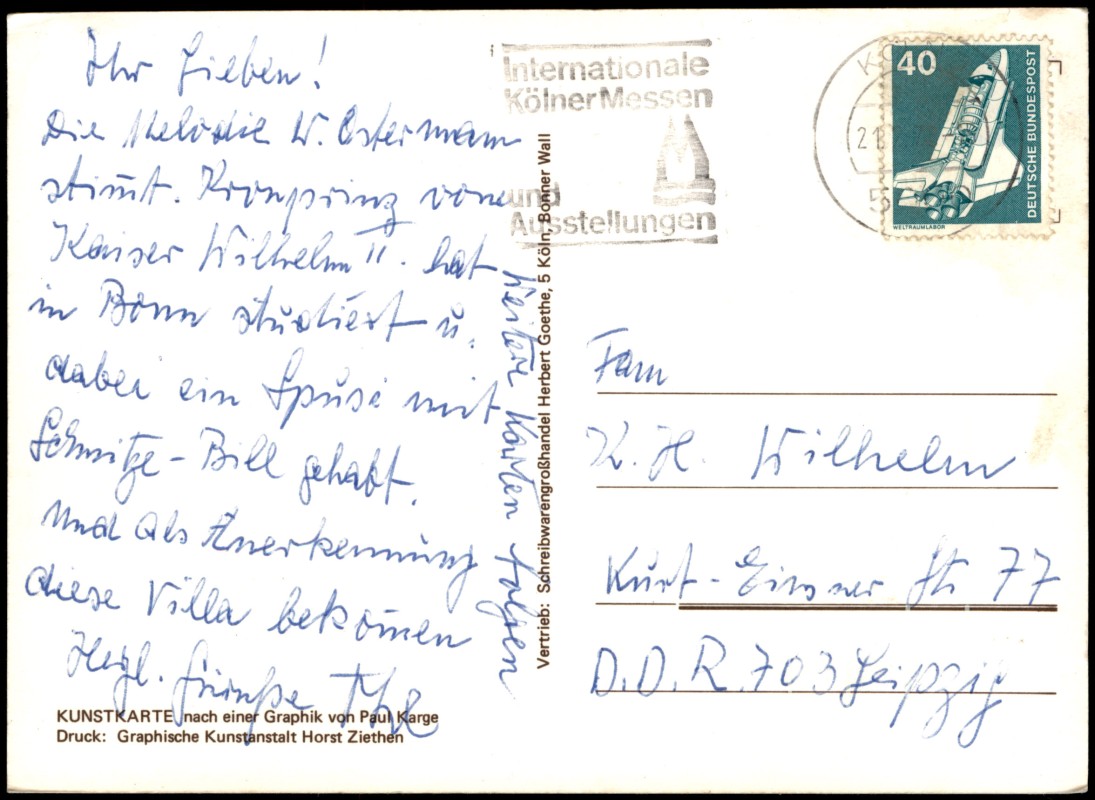 Ihr Lieben!
Die Melodie W. Ostermann
stimt. Kronprinz von
Kaiser Wilhelm II. hat
in Bonn studiert u.
dabei ein Spusi mit
Schmitze-Bill gehabt.
Und als Anerkennung
diese Villa bekomen
Herzl. Grüße
Weitere Karten folgen
KUNSTKARTE nach einer Graphik von Paul Karge
Druck: Graphische Kunstanstalt Horst Ziethen
Vertrieb: Schreibwarengroßhandel Herbert Goethe, 5 Köln, Bonner Wall
Internationale
Kölner Messen
und
Ausstellungen
5
40
DEUTSCHE BUNDESPOST
WELTRAUMLABOR
Fam
K. H. Wilhelm
Kurt-Eisner Str 77
D.D.R. 703 Leipzig